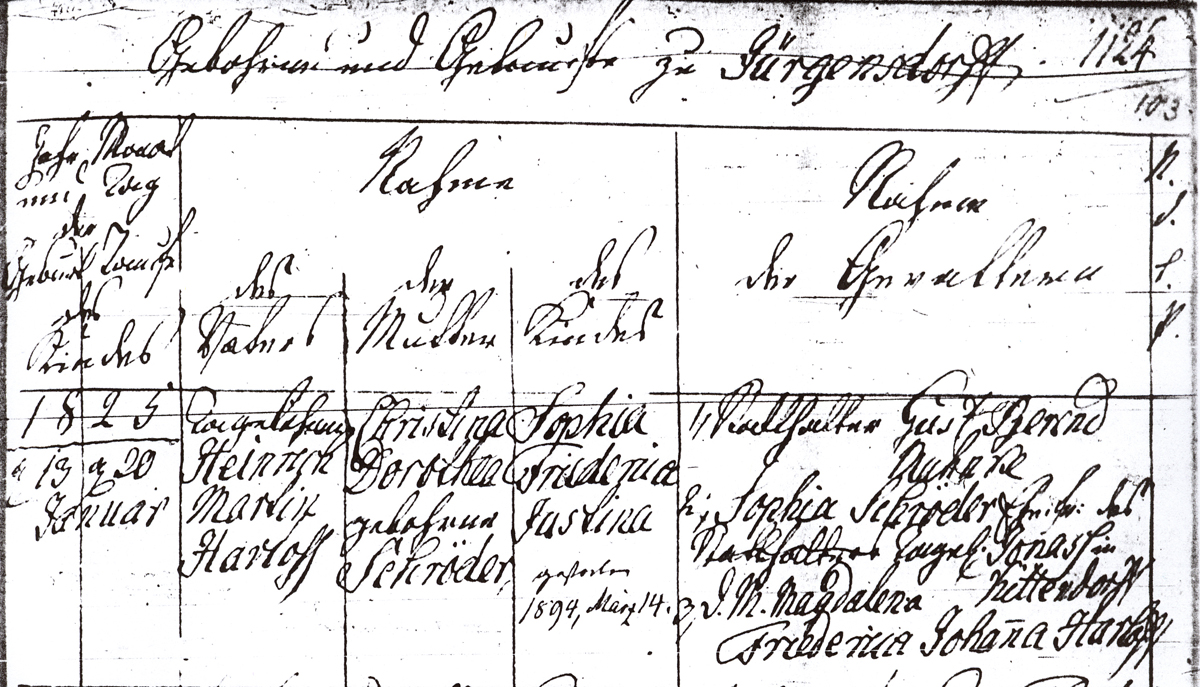 Gebohrne und Getaufte zu Jürgensdorff.
103
Jahr Monat
und Tag
der
Geburt Taufe
des
Kindes
Nahme
des
Vaters
der
Mutter
des
Kindes
Nahmen
der Gevattern
1825
13 20
Januar
Tagelöhner
Heinrich
Martin
Harloff
Christina
Dorothea
gebohrne
Schröder,
Sophia
Friederica
Justina
gestorben
1894, März 14.
1, Statthalter Gust Bernd
2, Sophia Schröder Ehefr: des
Statthalters Tagel. Jonass in
Kittendorff
3, d. M. Magdalena
Friederica Johanna Harloff